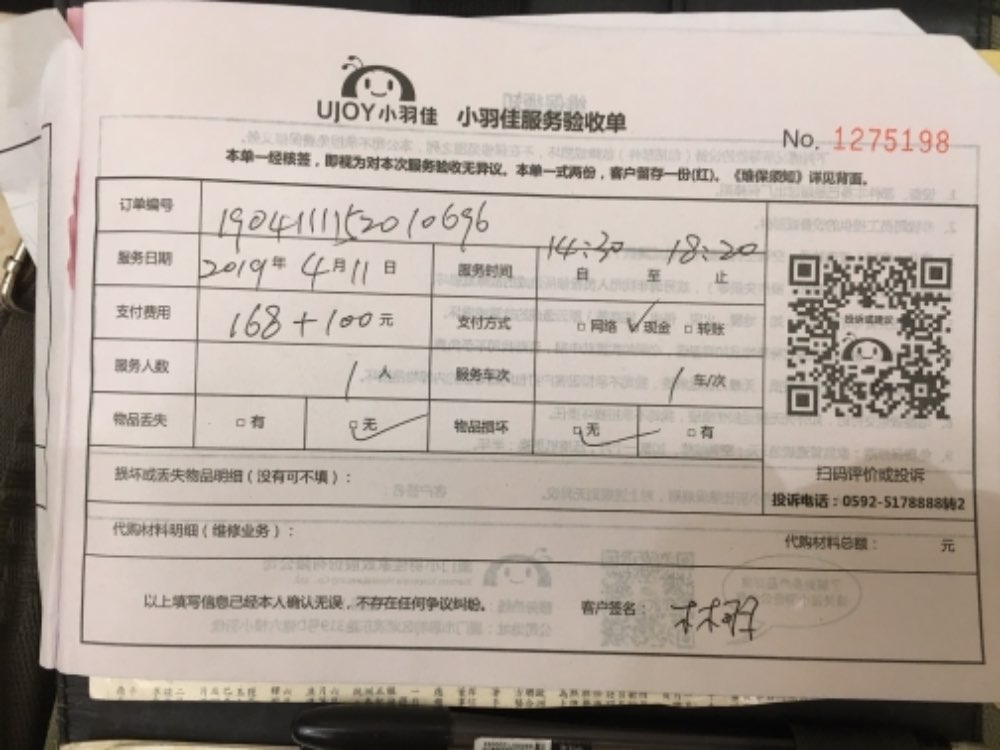 UJOY小羽佳 小羽佳服务验收单
No. 1275198
本单一经核签，即视为对本次服务验收无异议。本单一式两份，客户留存一份(红)。《维保须知》详见背面。
订单编号 1904111152010696
服务日期 2019年4月11日 服务时间 14:30自 至 18:20止
支付费用 168+100元 支付方式 □网络 ✓现金 □转账
投诉或建议
服务人数 1人 服务车次 1车/次
物品丢失 □有 □无✓ 物品损坏 □无✓ □有
损坏或丢失物品明细（没有可不填）：
扫码评价或投诉
投诉电话：0592-5178888转2
代购材料明细（维修业务）：
代购材料总额： 元
以上填写信息已经本人确认无误，不存在任何争议纠纷。 客户签名：